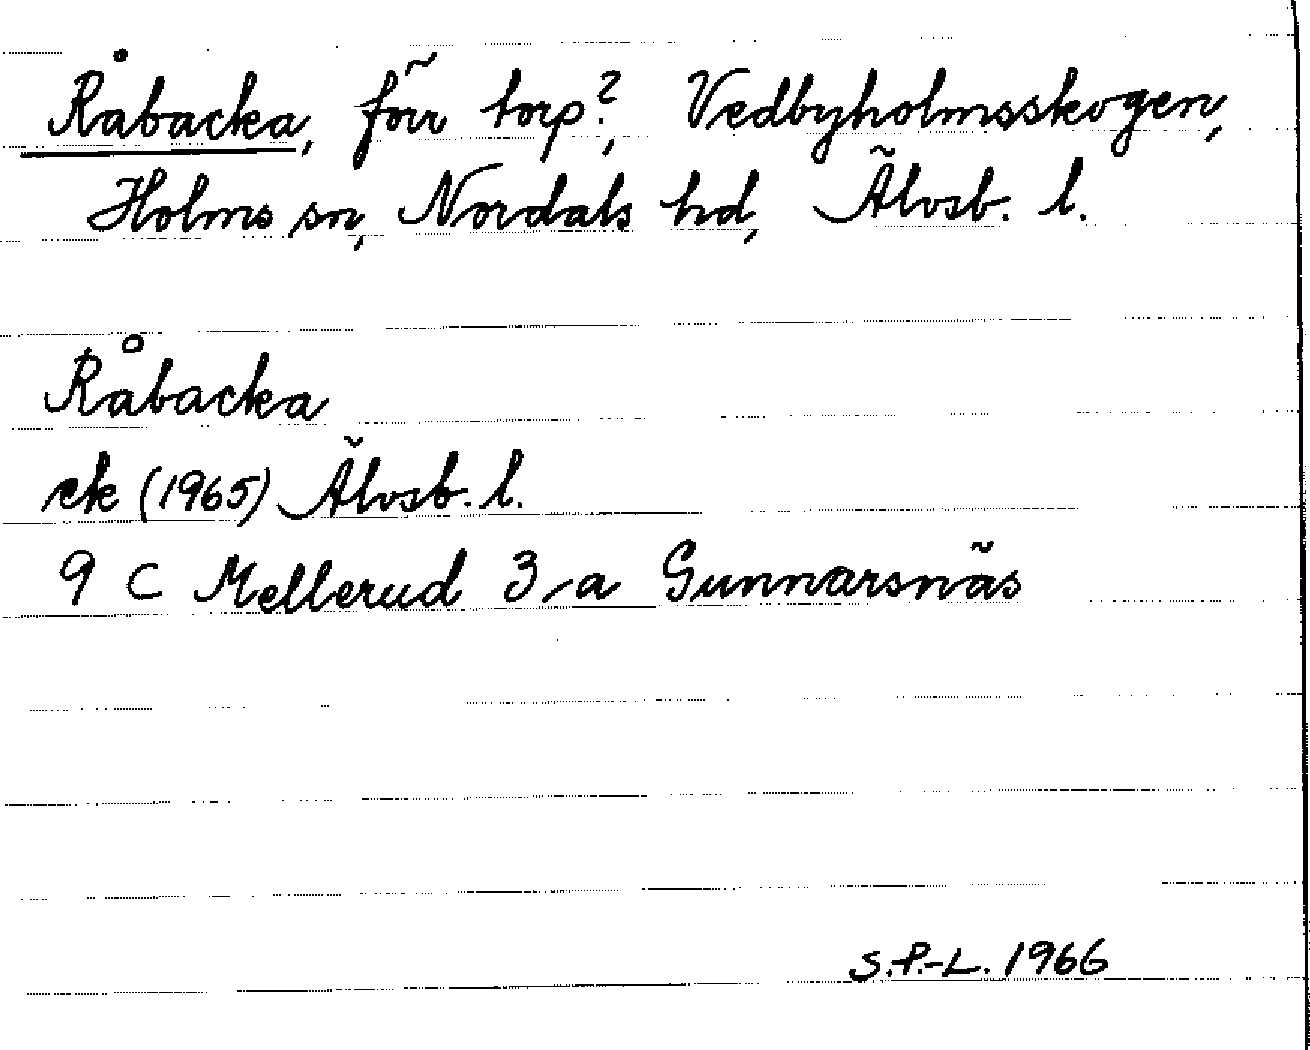 Råbacka, förr torp?, Vedbyholmsskogen,
Holms sn, Nordals hd, Älvsb. l.
Råbacka
ek (1965) Älvsb. l.
9 C Mellerud 3-a Gunnarsnäs
S.P.-L. 1966